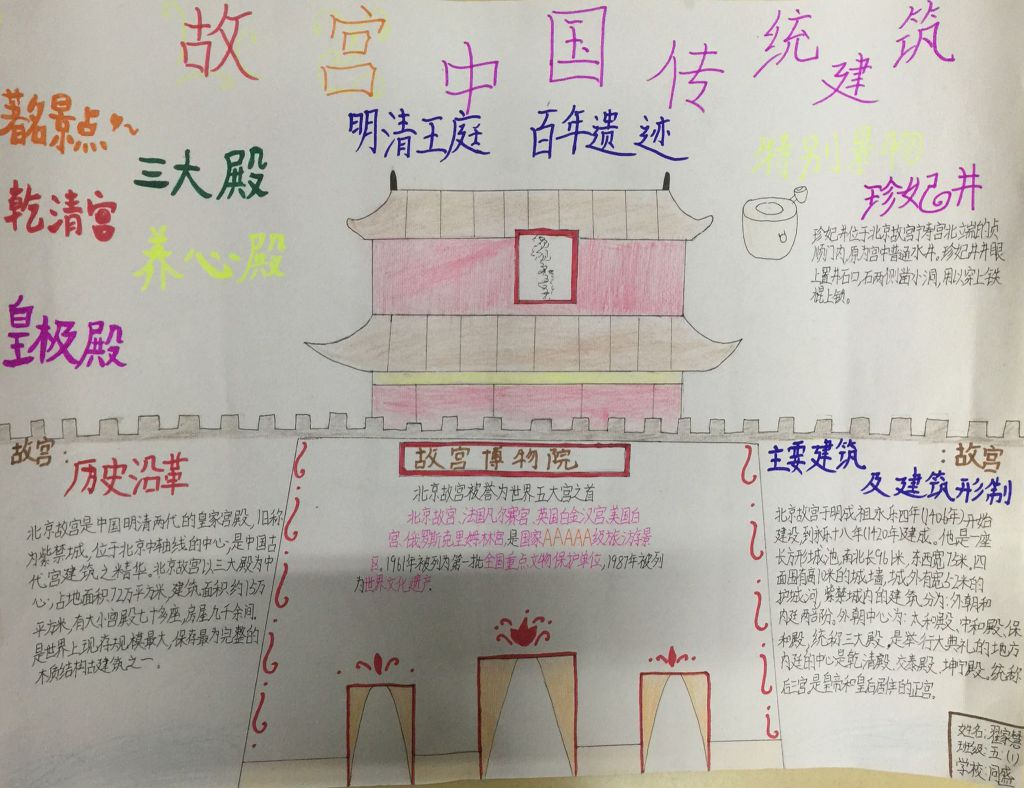 故宫中国传统建筑
明清王庭 百年遗迹
著名景点
三大殿
乾清宫
养心殿
皇极殿
特别景物
珍妃井
珍妃井位于北京故宫宁寿宫北端的贞
顺门内,原为宫中普通水井。珍妃井井眼
上置井石口,石两侧凿小洞,用以穿上铁
棍上锁。
故宫:
历史沿革
北京故宫是中国明清两代的皇家宫殿,旧称
为紫禁城。位于北京中轴线的中心,是中国古
代宫建筑之精华。北京故宫以三大殿为中
心,占地面积72万平方米,建筑面积约15万
平方米,有大小宫殿七十多座,房屋九千余间。
是世界上现存规模最大,保存最为完整的
木质结构古建筑之一。
故宫博物院
北京故宫被誉为世界五大宫之首
北京故宫、法国凡尔赛宫、英国白金汉宫、美国白
宫、俄罗斯克里姆林宫是国家AAAAA级旅游景
区。1961年被列为第一批全国重点文物保护单位,1987年被列
为世界文化遗产.
主要建筑 :故宫
及建筑形制
北京故宫于明成祖永乐四年(1406年)开始
建设,到永乐十八年(1420年)建成。他是一座
长方形城池,南北长961米,东西宽75米,四
面围有高10米的城墙,城外有宽52米的
护城河,紫禁城内的建筑分为:外朝和
内廷两部分。外朝中心为:太和殿、中和殿、保
和殿,统称三大殿,是举行大典礼的地方
内廷的中心是乾清殿、交泰殿、坤宁殿。统称
后三宫,是皇帝和皇后居住的正宫.
姓名:翟家慧
班级:五(1)
学校:同盛